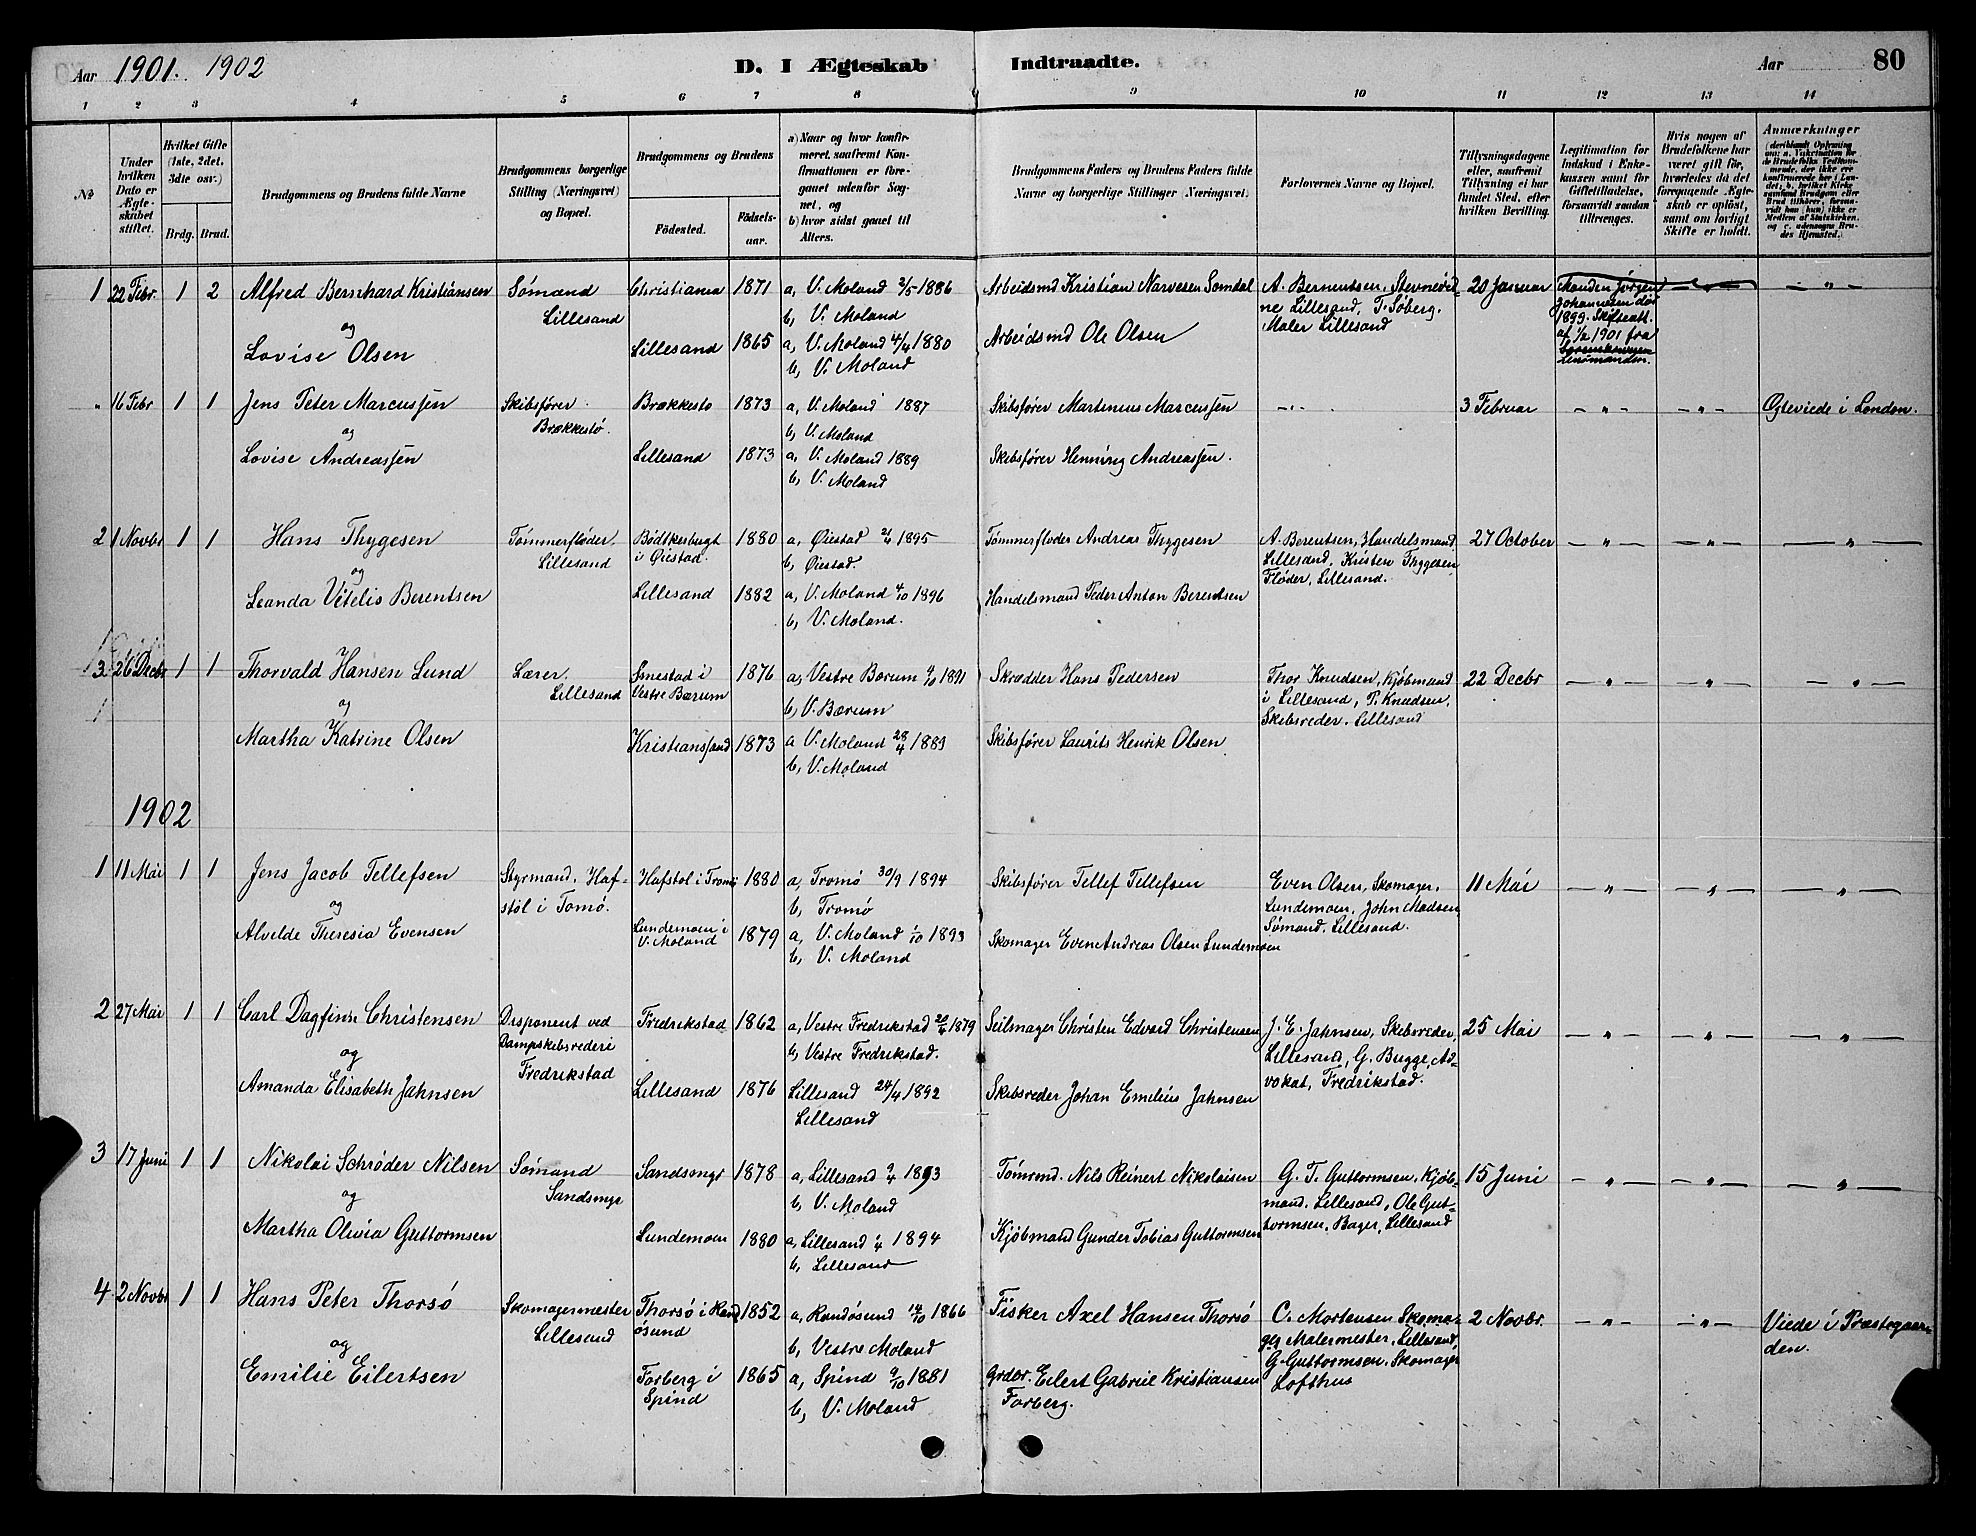 Aar 1901. 1902 D. I Ægteskab Indtraadte. Aar 80
1 2 3 4 5 6 7 8 9 10 11 12 13 14
№
Under hvilken Dato er Ægteskabet stiftet.
Hvilket Gifte (1ste, 2det, 3die osv.)
Brdg. Brud.
Brudgommens og Brudens fulde Navne
Brudgommens borgerlige Stilling (Næringsvei) og Bopæl.
Brudgommens og Brudens
Födested. Födselsaar.
a) Naar og hvor konfirmeret, saafremt Konfirmationen er foregaaet udenfor Sognet, og
b) hvor sidst gaaet til Alters.
Brudgommens Faders og Brudens Faders fulde Navne og borgerlige Stillinger (Næringsvei)
Forlovernes Navne og Bopæl.
Tillysningsdagene eller, saafremt Tillysning ei har fundet Sted, efter hvilken Bevilling.
Legitimation for Indskud i Enkekassen samt for Giftetilladelse, forsaavidt saadan tiltrænges.
Hvis nogen af Brudefolkene har været gift för, hvorledes da det foregaaende Ægteskab er oplöst, samt om lovligt Skifte er holdt.
Anmærkninger
1 22 Febr. 1 2 Alfred Bernhard Kristiansen
og
Lovise Olsen
Sømænd
Lillesand
Christiania 1871 a, V. Moland 2/5 1886
b, V. Moland
Lillesand 1865 a, V. Moland 4/4 1880
b, V. Moland
Arbeidsmd Kristian Narvesen Somdal
Arbeidsmd Ole Olsen
A. Berentsen, Lillesand, T. Søberg.
Maler Lillesand
20 Januar
Manden Jörgen
Johannesen død
1899. Skifteatt.
af 1/2 1901 fra
Lensmanden.
— „ —
„ 16 Febr 1 1 Jens Peter Marcussen
og
Lovise Andreassen
Skibsfører
Brækkestø.
Brækkestø 1873 a, V. Moland 1887
b, V. Moland
Lillesand 1873 a, V. Moland 1889
b, V. Moland
Skibsfører Martinius Marcussen
Skibsfører Henning Andreassen.
— „ — 3 Februar — „ — — „ — Ogteviede i London.
2 1 Novbr 1 1 Hans Thygesen
og
Leanda Vitelis Berentsen
Tømmerfløder.
Lillesand
Bødtkerbergt
i Øiestad.
1880 a, Øiestad 1895
b, Øiestad.
Lillesand 1882 a, V. Moland 4/10 1896
b, V. Moland.
Tømmerfløder Andreas Thygesen
Handelsmand Peder Anton Berentsen
A. Berentsen, Handelsmand
Lillesand, Kristen Thygesen
Fløder, Lillesand.
27 October — „ — — „ — — „ —
3 26 Decbr 1 1 Thorvald Hansen Lund
og
Martha Katrine Olsen
Lærer.
Lillesand
Smestad i
Vestre Bærum
1876 a, Vestre Bærum 4/10 1891
b, V. Bærum
Kristianssand 1873 a V. Moland 28/4 1889
b, V. Moland
Skrædder Hans Pedersen
Skibsfører Laurits Henrik Olsen
Thor Knudsen, Kjøbmand
i Lillesand, P. Knudsen,
Skibsreder. Lillesand
22 Decbr — „ — — „ — — „ —
1902
1 11 Mai 1 1 Jens Jacob Tellefsen
og
Alvelde Theresia Evensen
Styrmand. Haf-
støl i Tomø.
Hafstøl i Tromø 1880 a, Tromø 30/9 1894
b, Tromø
Lundemoen i
V. Moland
1879 a, V. Moland 1/10 1893
b, V. Moland
Skibsfører Tellef Tellefsen
Skomager Even Andreas Olsen Lundemoen
Even Olsen, Skomager.
Lundemoen, John Madsen
Sømand. Lillesand.
11 Mai — „ — — „ — — „ —
2 27 Mai 1 1 Carl Dagfinn Christensen
og
Amanda Elisabeth Jahnsen
Disponent ved
Dampskibsrederi
Fredrikstad
Fredrikstad 1862 a, Vestre Fredrikstad 1879
b, Vestre Fredrikstad.
Lillesand 1876 Lillesand 24/4 1892
Lillesand
Seilmager Christen Edvard Christensen
Skibsreder Johan Emilius Jahnsen
J. E. Jahnsen, Skibsreder,
Lillesand, G. Bugge, Ad-
vokat, Fredrikstad.
25 Mai — „ — — „ — — „ —
3 17 Juni 1 1 Nikolai Schrøder Nilsen
og
Martha Olivia Guttormsen
Sømand
Sandsmyr
Sandsmyr 1878 a, Lillesand 9/4 1893
b, V. Moland
Lundemoen 1880 a, Lillesand 1/4 1894
b, Lillesand
Tømrmd. Nils Reinert Nikolaisen
Kjøbmand Gunder Tobias Guttormsen
G. T. Guttormsen. Kjøb-
mand. Lillesand, Ole Gut-
tormsen, Bager, Lillesand
15 Juni — „ — — „ — — „ —
4 2 Novbr 1 1 Hans Peter Thorsø
og
Emilie Eilertsen
Skomagermester
Lillesand
Thorsø i Rand
øsund
1852 a, Randøsund 14/10 1866
b, Vestre Moland
Forberg i
Spind
1865 a, Spind 9/10 1881
b, V. Moland
Fisker Axel Hansen Thorsø
Grdbr. Eilert Gabriel Kristiansen
Forberg.
C. Mortensen Skoma-
ger Malermester, Lillesand,
G. Guttormsen. Skomager
Lofthus
2 Novbr. — „ — — „ — Viede i Præstegaar-
den.